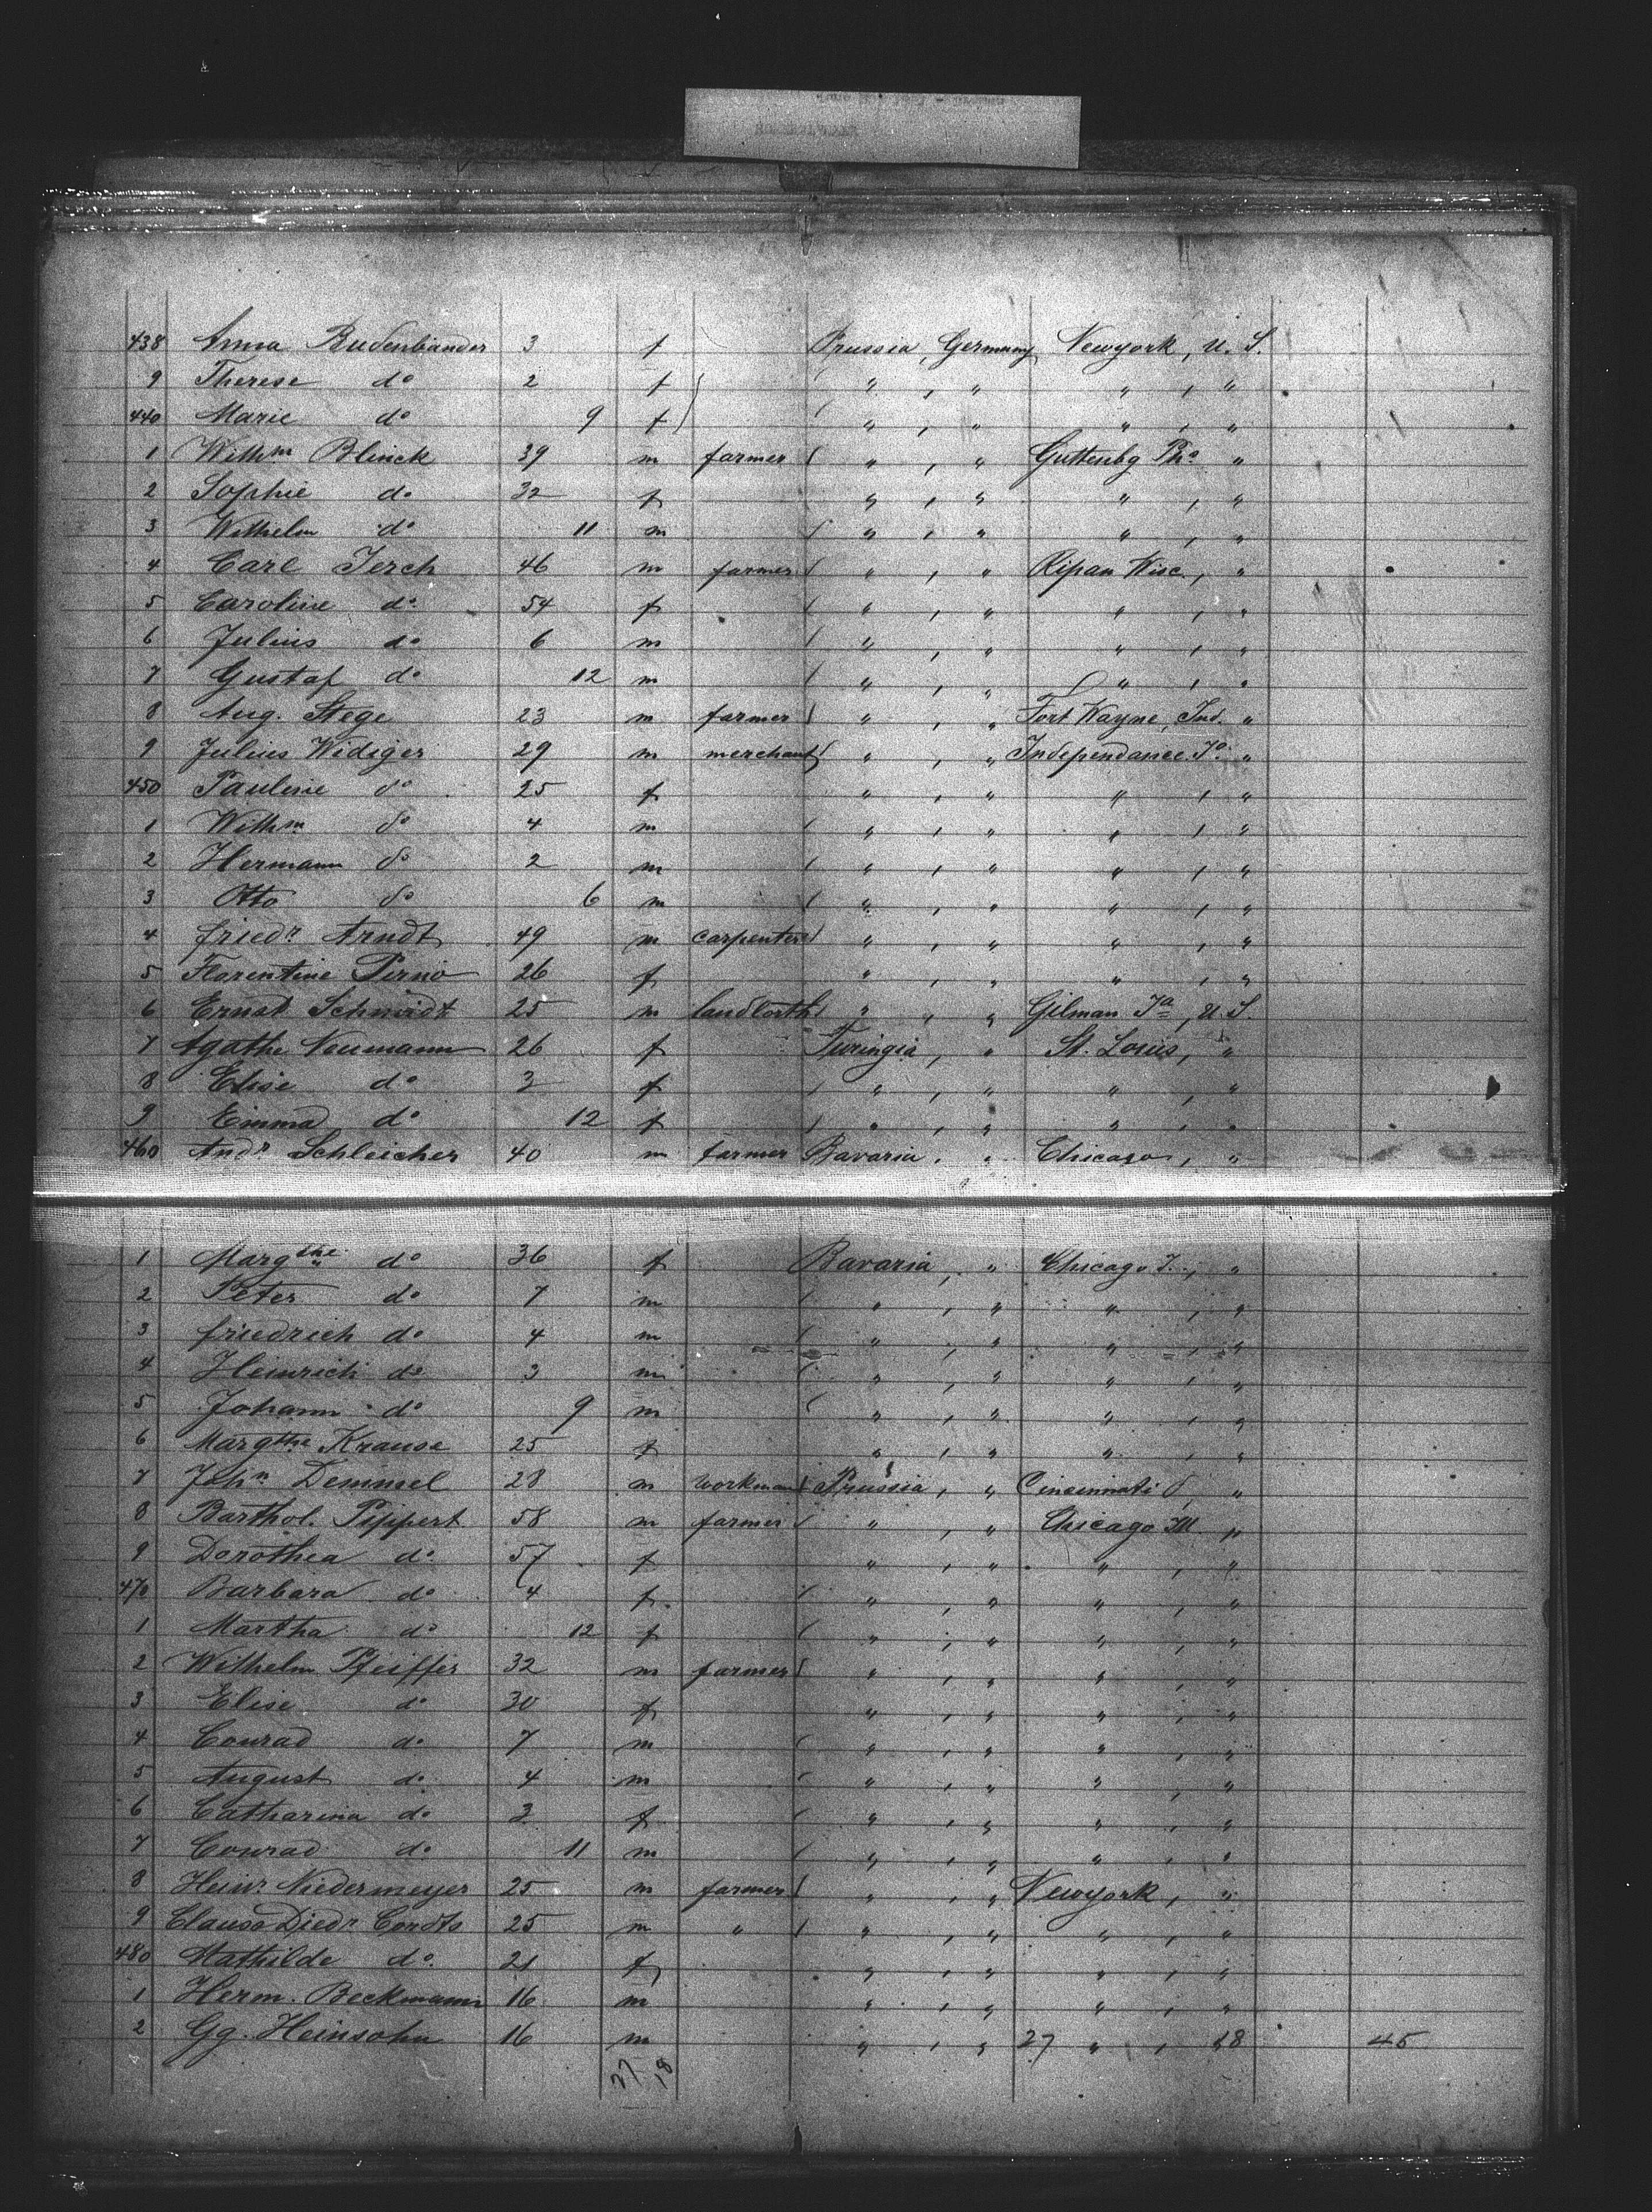 438 Anna Budenbänder 3 f Prussia, Germany Newyork, U. S.
9 Therese do 2 f " , " " , "
440 Marie do 9 f " , " " , "
1 Wilhm Blinck 39 m farmer " , " Guttenbg "
2 Sophie do 32 f " , " " , "
3 Wilhelm do 11 m " , " " , "
4 Carl Jerch 46 m farmer " , " Ripan Wisc., "
5 Caroline do 54 f " , " " , "
6 Julius do 6 m " , " " , "
7 Gustaf do 12 m " , " " , "
8 Aug. Stege 23 m farmer " , " Fort Wayne, Ind. "
9 Julius Widiger 29 m merchant " , " Independance Jo. "
450 Pauline do 25 f " , " " , "
1 Wilhm do 4 m " , " " , "
2 Hermann do 2 m " , " " , "
3 Otto do 6 m " , " " , "
4 friedr Arndt 49 m carpenter " , " " , "
5 Florentine Perno 26 f " , " " , "
6 Ernst Schmidt 25 m " , " Gilman Ja, U. S.
7 Agathe Neumann 26 f Turingia, " St. Louis, "
8 Elise do 3 f " , " " , "
9 Emma do 12 f " , " " , "
460 Andr Schleicher 40 m farmer Bavaria, " Chicago, "
1 Margthe do 36 f Bavaria, " Chicago J., "
2 Peter do 7 m " , " " , "
3 friedrich do 4 m " , " " , "
4 Heinrich do 3 m " , " " , "
5 Johann do 9 m " , " " , "
6 Margthe Krause 25 f " , " " , "
7 John Demmel 28 m workman Prussia, " Cincinnati O, "
8 Barthol. Pippert 58 m farmer " , " Chicago Ill "
9 Dorothea do 57 f " , " " , "
470 Barbara do 4 f " , " " , "
1 Martha do 12 f " , " " , "
2 Wilhelm Pfeiffer 32 m farmer " , " " , "
3 Elise do 30 f " , " " , "
4 Conrad do 7 m " , " " , "
5 August do 4 m " , " " , "
6 Catharina do 3 f " , " " , "
7 Conrad do 11 m " , " " , "
8 Heinr. Niedermeyer 25 m farmer " , " Newyork, "
9 Clauss Diedr Cordts 25 m " " , " " , "
480 Mathilde do 21 f " , " " , "
1 Herm. Beckmann 16 m " , " " , "
2 Gg. Heinsohn 16 m " , " 27 " , 18 45
27 18